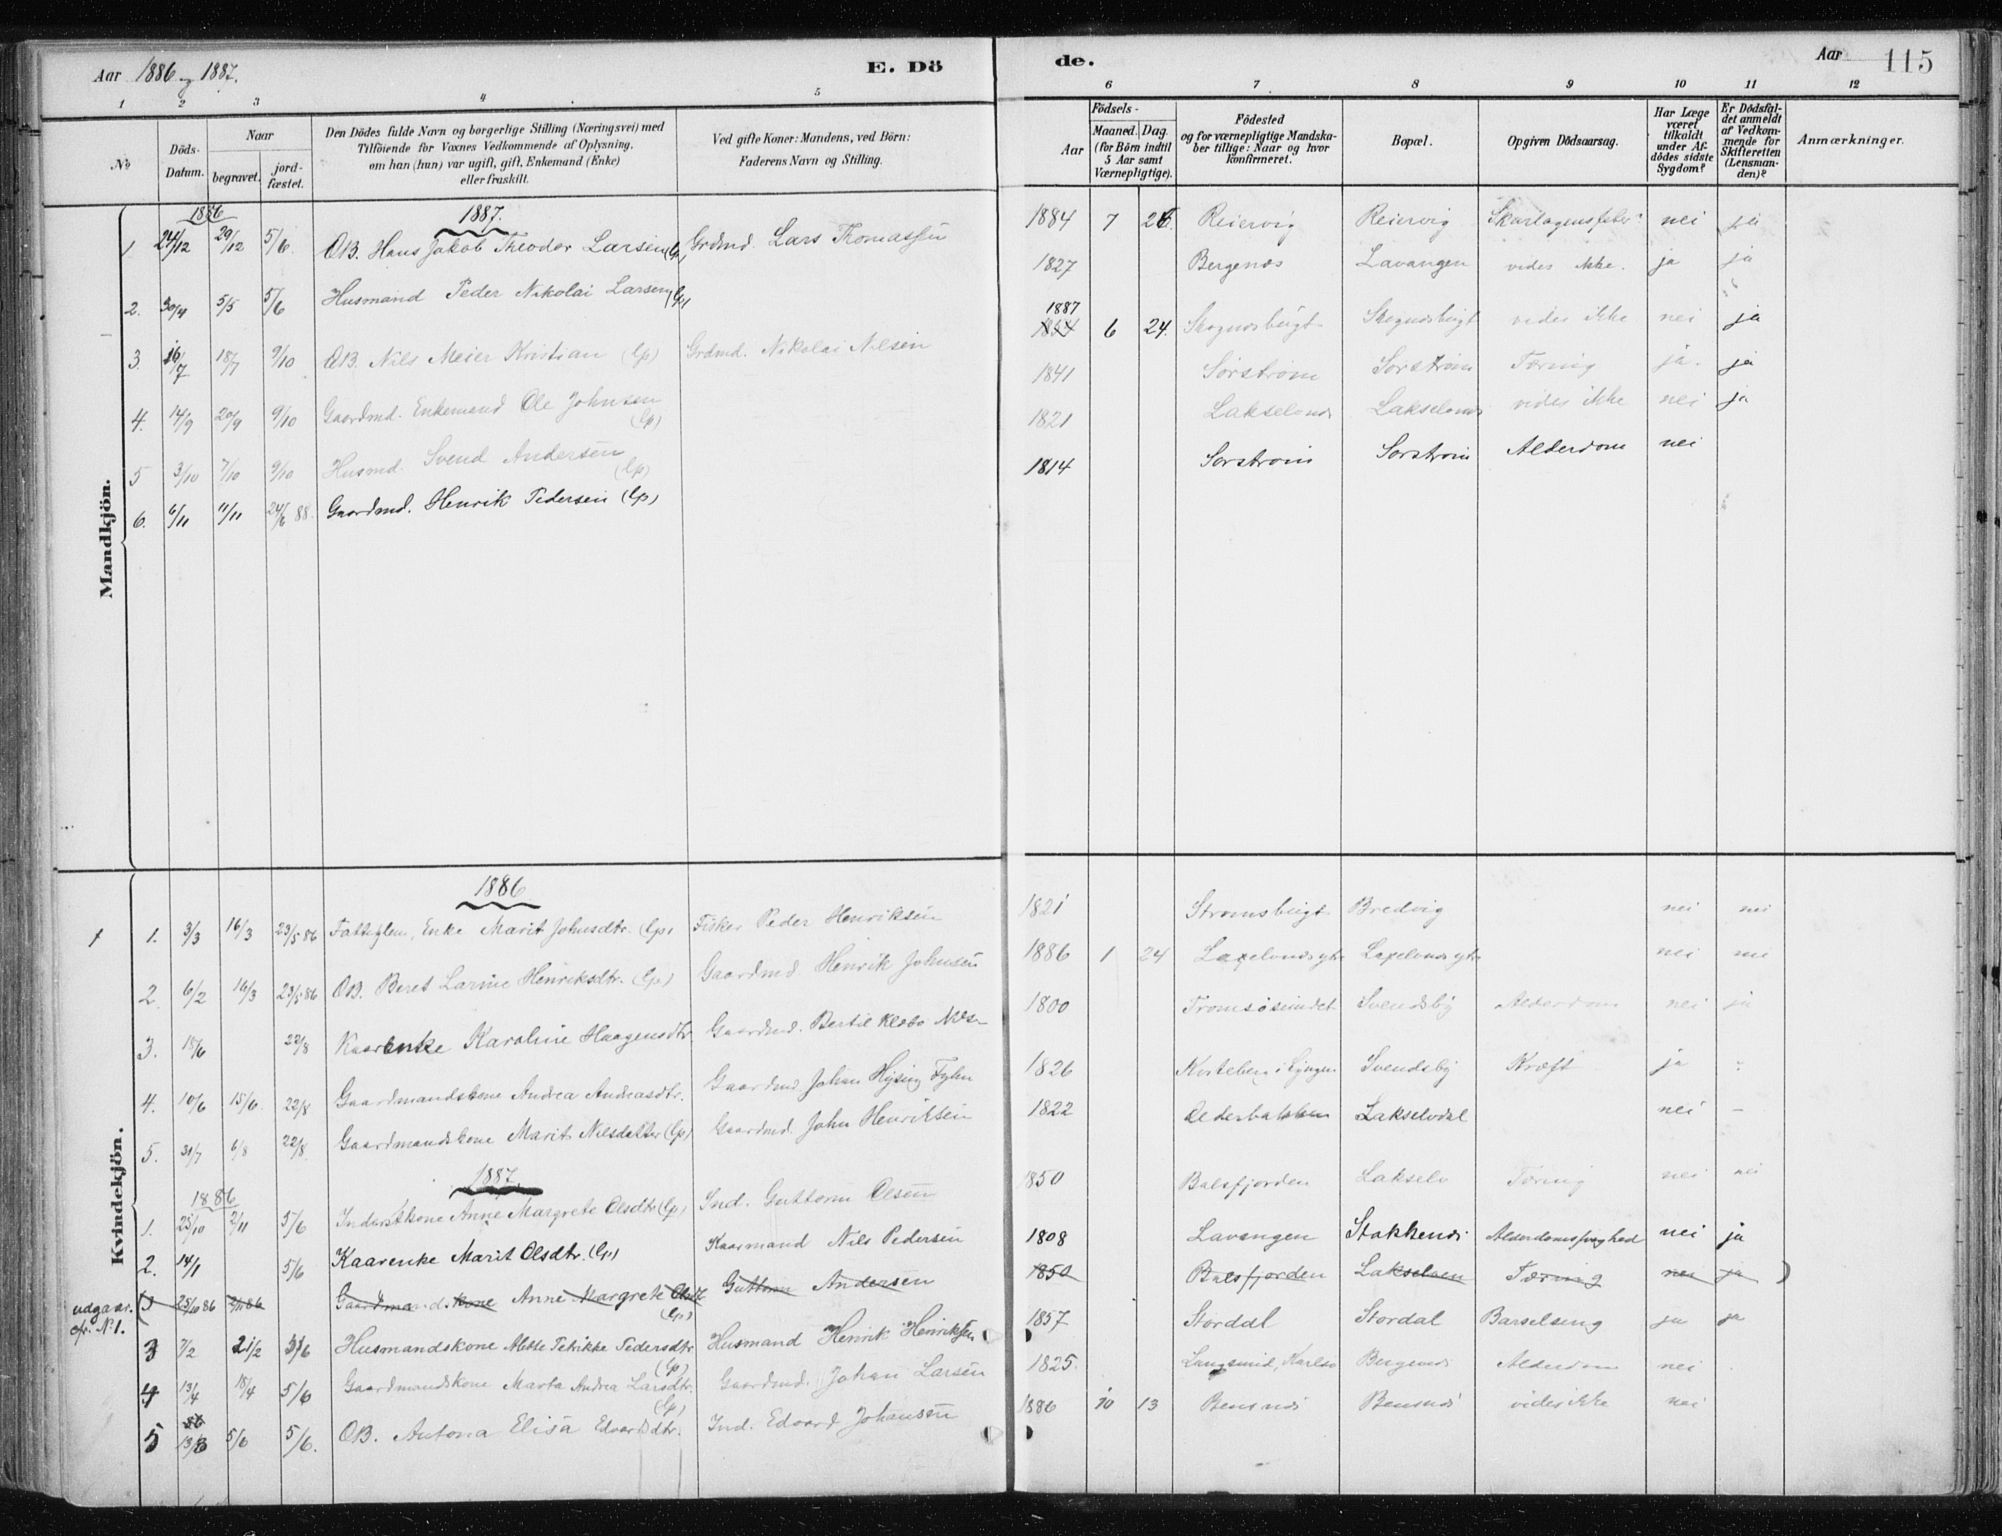 Aar 1886 og 1887. E. Dö de. Aar 115
1 2 3 4 5 6 7 8 9 10 11 12
No Döds-Datum. Naar begravet. jord-fæstet. Den Dödes fulde Navn og borgerlige Stilling (Næringsvei) med Tilföiende for Voxnes Vedkommende af Oplysning, om han (hun) var ugift, gift, Enkemand (Enke) eller fraskilt. Ved gifte Koner: Mandens, ved Börn: Faderens Navn og Stilling. Födsels- Aar Maaned. Dag. (for Börn indtil 5 Aar samt Værnepligtige). Födested og for værnepligtige Mandska-ber tillige: Naar og hvor konfirmeret. Bopæl. Opgiven Dödsaarsag. Har Læge været tilkaldt under Af-dödes sidste Sygdom? Er Dödsfal-det anmeldt af Vedkom-mende for Skifteretten (Lensman-den)? Anmærkninger.
Mandkjön.
1886 1887.
1 24/12 29/12 5/6 ÆB. Hans Jakob Theodor Larsen (Lp) Grdmd. Lars Thomassen 1884 7 26 Reiervig Reiervig Skarlagensfeber nei ja
2. 30/4 5/5 5/6 Husmand Peder Nikolai Larsen (Lp) 1827 Bergenæs Lavangen vides ikke. ja ja
3. 16/7 18/7 9/10 ÆB. Nils Meier Kristian (Lp) Grdmd. Nikolai Nilsen 1887 6 24 vides ikke nei ja
4. 14/9 20/9 9/10 Gaardmd. Enkemand Ole Johnsen (Lp) 1841 Sörström Sorström Tæring ja. ja
5 3/10 7/10 9/10 Husmd. Svend Andersen (Lp) 1821 vides ikke nei ja
6. 6/11 11/11 24/6 88. Gaardmd. Henrik Pedersen (Lp) 1814 Sorström Sorström Alderdom nei
Kvindekjön.
1886
1. 3/3 16/3 23/5 86 Enke Marit Johnsdtr. (Lp) Fisker Peder Henriksen 1821 Strömsbugt Bredvig nei nei
2 6/2 16/3 23/5 86 ÆB. Beret Larine Henriksdtr. (Lp) Gaardmd Henrik Johnsen 1886 1 24 nei nei
3. 18/6 22/8 Kaarenke Karoline Haagensdtr. Gaardmd. Bertil 1800 Tromsösundet Svendsby Alderdom nei ja
4. 10/6 15/6. 22/8 Gaardmandskone Andrea Andreasdtr. Gaardmd Johan Hysing Fyhn 1826 Svendsby Kræft ja
5. 31/7 6/8 22/8 Gaardmandskone Marit Nilsdatter (Lp) Gaardmd. John Henriksen 1822 Lakselvdal nei –
1886 1887
1. 25/10 2/11 5/6 Inderstkone Anne Margrete Olsdtr (Lp) Ind. Guttorm Olsen 1850 Balsfjorden Lakselv Tæring nei nei
2. 14/1 5/6 Kaarenke Marit Olsdtr. (Lp) Kaarmand Nils Pedersen 1808 Lavangen Stokkenæs Alderdomssvaghed nei ja
udgaar. cfr. N 1. (3 25/10 86 2/11 86 Gaardmandskone Anne Margrete Olsdtr (Lp) Guttorm Andersen 1850 Balsfjorden Lakselven Tæring nei ja )
3 7/2 21/2 5/6 Husmandskone Mette Petrikke Pedersdtr (Lp) Husmand Henrik Henriksen 1857 Stordal Stordal Barselseng ja ja
4 13/4 18/4 5/6 Gaardmandskone Marta Andrea Larsdtr. (Lp) Gaardmd. Johan Larsen 1825. Langsund, Karlsö Bergenæs Alderdom nei
5 86 13/8 5/6 5/6. ÆB. Antona Elisa Edvardsdtr. Ind. Edvard Johansen 1886 10 13 Bensnæs Bensnæs vides ikke nei